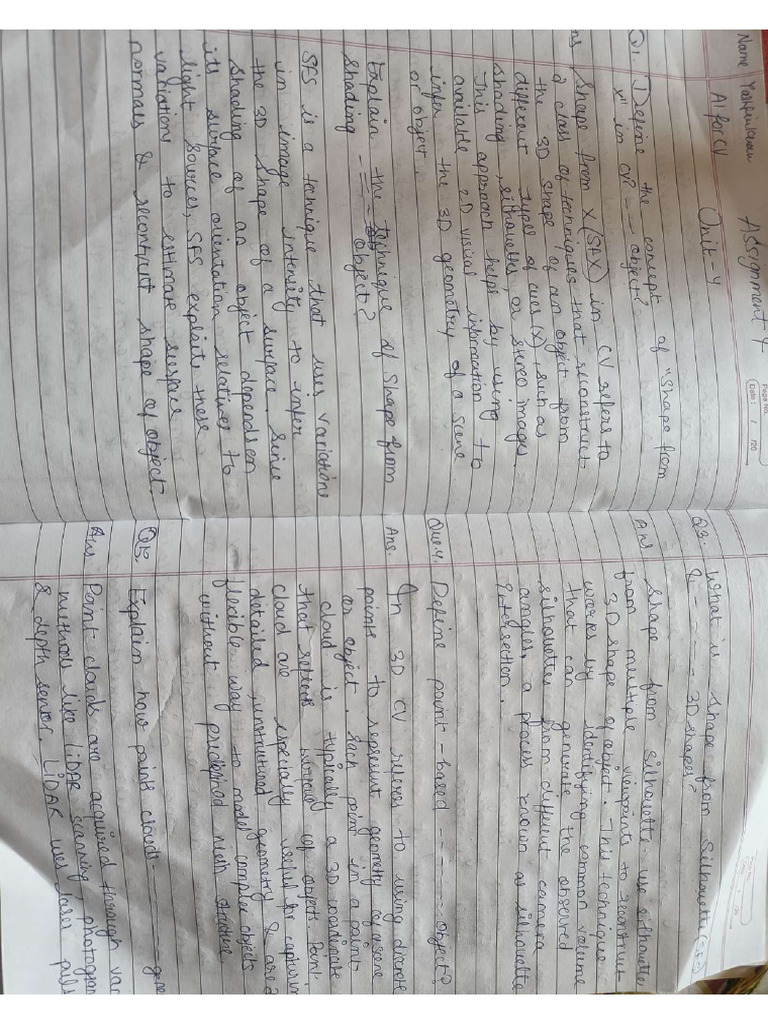 Name
Assignment 4
Page No.
Date: / /20
AI for CV
Unit-4
Q1. Define the concept of "Shape from
x" in CV? - - - object?
Ans Shape from X (SFX) in CV refers to
a class of techniques that reconstruct
the 3D shape of an object from
different types of cues (X) such as
shading, silhouettes, or stereo images.
This approach helps by using
available 2D visual information to
infer the 3D geometry of a scene
or object.
Explain the technique of Shape from
shading - - - object?
SFS is a technique that uses variations
in image intensity to infer
the 3D shape of a surface. Since
shading of an object depends on
its surface orientation relatives to
light sources, SFS exploits these
variations to estimate surface
normals & recontruct shape of object.
Q3. What is Shape from Silhouette
& - - - - - 3D shapes?
Ans Shape from silhouette use silhouettes
from multiple viewpoints to recontruct
3D shape of object. This technique
works by identifying common volume
that can generate the observed
silhouettes from different camera
angles, a process known as silhouette
intersection.
Que 4. Define point-based - - - - - object?
Ans. In 3D CV referes to using discrete
points to represent geometry of scene
or object. Each point in a point
cloud is typically a 3D coordinate
that reflects surface of object. Point
cloud are especially useful for capturin
detailed, unstructured geometry & are a
flexible way to model complex objects
without predefined mesh structure
Q5. Explain how point clouds - - - - gene
Ans Point clouds are acquired through var
methods like LiDAR scanning, photogram
& depth sensor. LiDAR uses laser puls